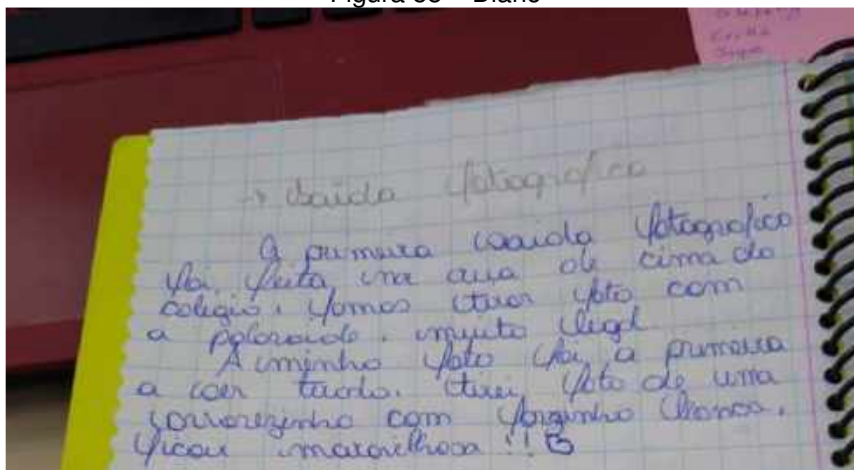 Figura 33 – Diário
→ Saída fotografica
A primeira saida fotografica
foi feita na rua de cima do
colégio. Fomos tirar foto com
a poloroide. muito legl
A minha foto foi a primeira
a ser tirada. tirei foto de uma
com florzinha branca.
ficou maravilhosa!!